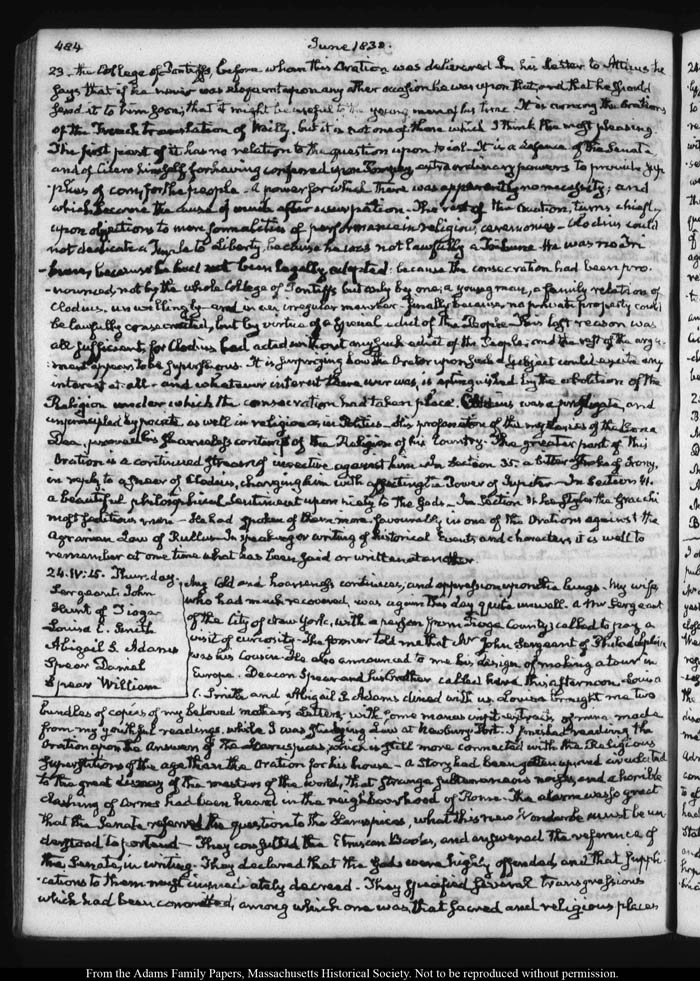 484
June 1830.
23. the College of Pontiffs, before whom this Oration was delivered. In his Letter to Atticus he
says that if he never was eloquent upon any other occasion he was upon that, and that he should
send it to him soon, that it might be useful to the young men of his time. It is among the Orations
of the French translation of Wailly, but it is not one of those which I think the most pleasing.
The first part of it has no relation to the question upon trial. It is a defence of the Senate
and of Cicero himself for having conferred upon Pompey extraordinary powers to provide sup-
plies of corn, for the people. A power for which there was apparently no necessity; and
which became the cause of much after usurpation. The rest of the Oration, turns chiefly
upon objections to mere formalities of performance in religious ceremonies. Clodius could
not dedicate a Temple to Liberty, because he was not lawfully a Tribune. He was no Tri-
bune, because he had not been legally adopted: because the consecration had been pro-
nounced, not by the whole College of Pontiffs but only by one; a young man, a family relation of
Clodius. unwillingly and in an irregular manner. Finally because no private property could
be lawfully consecrated, but by virtue of a special edict of the People. This last reason was
all sufficient, for Clodius had acted without any such edict of the People; and the rest of the argu-
ment appears to be superfluous. It is surprizing how the Orator upon such a subject could excite any
interest at all. and whatever interest there ever was, is extinguished by the abolition of the
Religion under which the consecration had taken place. Clodius was a profligate, and
unprincipled hypocrite, as well in religion as in Politics. His profanation of the mysteries of the Bona
Dea, proved his shameless contempt of the Religion of his Country. The greater part of this
Oration is a continued stream of invective against him. In Section 35. a bitter stroke of Irony,
in reply to a sneer of Clodius, charging him with affecting the Power of Jupiter. In Section 41.
a beautiful philosophical sentiment upon piety to the Gods. In Section 31 he styles the Gracchi
most seditious men. He had spoken of them more favourably, in one of the Orations against the
Agrarian Law of Rullus. In speaking or writing of historical Events and characters it is well to
remember at one time what has been said or written at another.
24. IV:15. Thursday.
Sergeant. John
Hunt of Tioga
Louisa C. Smith
Abigail S. Adams
Spear Daniel
Spear William
My Cold and hoarseness continues, and oppression upon the lungs. My wife
who had much recovered, was again this day quite unwell. a Mr Sergeant
of the City of New York, with a person from Tioga County, called to pay a
visit of curiosity. The former told me that Mr John Sergeant of Philadelphia
was his Cousin. He also announced to me his design of making a tour in
Europe. Deacon Spear and his brother called here this afternoon. Louisa
C. Smith and Abigail S. Adams dined with us. Louisa brought me two
bundles of copies of my beloved mother's Letters; with some manuscript extracts of mine made
from my youthful readings, while I was studying Law at Newbury-Port. I finished reading the
Oration upon the Answers of the Haruspices, which is still more connected with the Religious
Superstitions of the age than the Oration for his house. A story had been gotten up and circulated
to the great dismay of the masters of the world, that strange subterraneous noises, and a horrible
clashing of arms had been heard in the neighbourhood of Rome. The alarm was so great
that the Senate referred the question to the Haruspices, what this new Wonder must be un-
derstood to portend. They consulted the Etruscan Books, and answered the reference of
the Senate, in writing. They declared that the Gods were highly offended, and that suppli-
cations to them must immediately decreed. They specified several transgressions
which had been committed, among which one was, that sacred and religious places
From the Adams Family Papers, Massachusetts Historical Society. Not to be reproduced without permission.